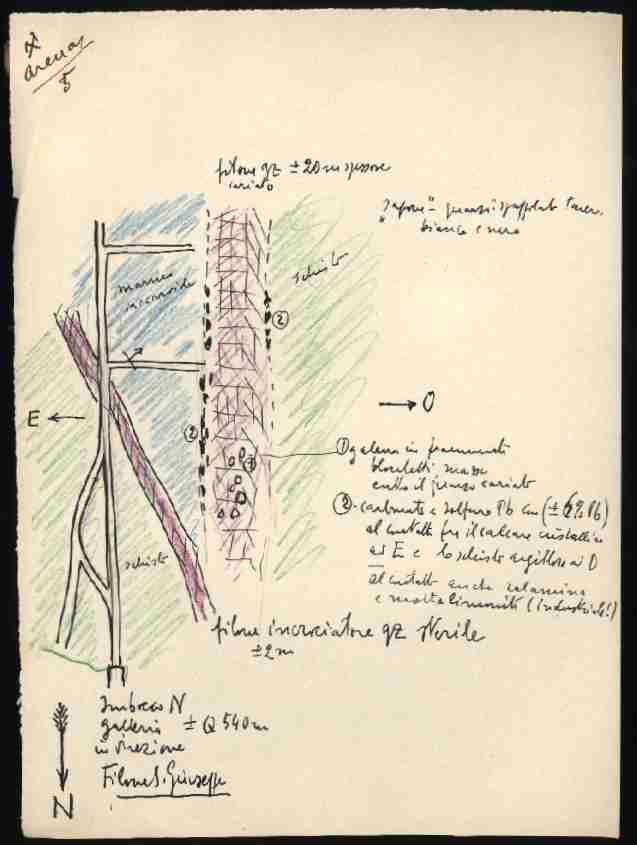 Arenas
5
filone qz ± 20 m spessore
cariato
bianco e nero
schisto
②
E
O
②
①
① galena in frammenti
blocchetti masse
entro il quarzo cariato
② carbonato e solfuro Pb (± 6% Pb)
al contatto fra il calcare cristallino
ad E e lo schisto argilloso ad O
al contatto anche calamina
e molta limonite (industriale!)
schisto
filone incrociatore qz sterile
± 2 m
Imbocco N
galleria ± Q 540 m
in direzione
Filone S. Giuseppe
N